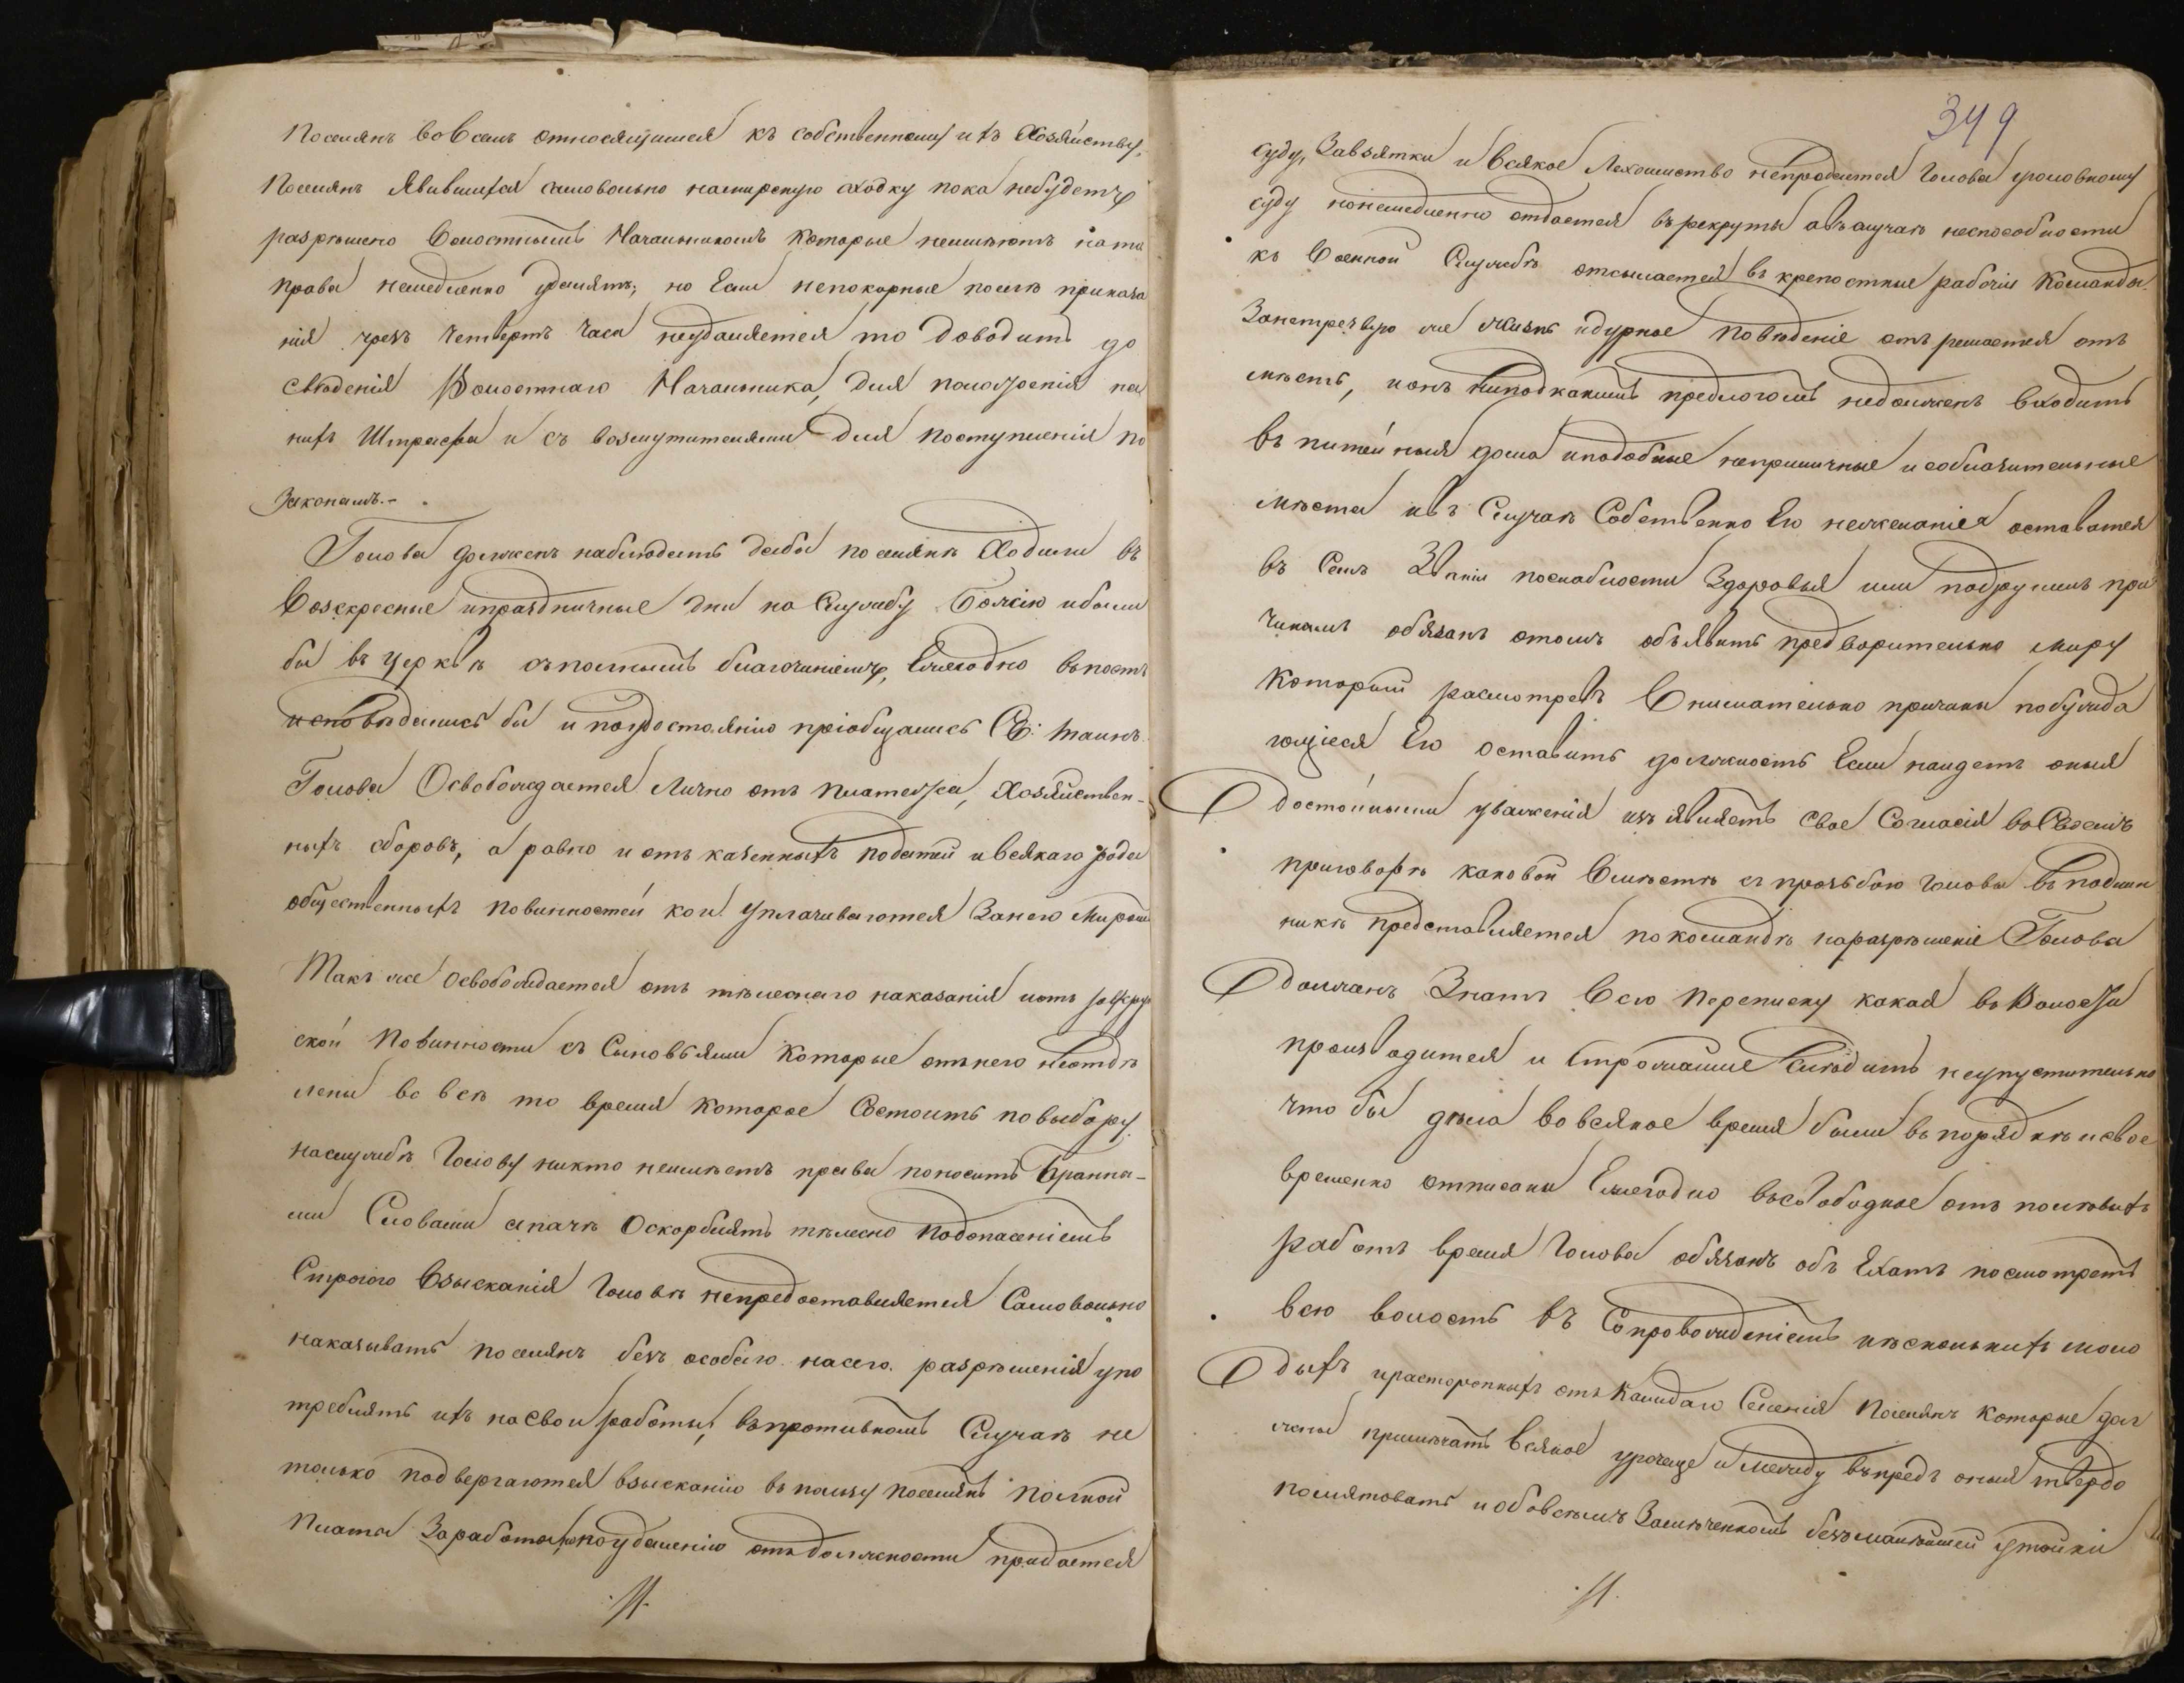 Поселянъ во Всемъ относящимся къ собственному ихъ Хозяйству,
Поселянъ Явившихся самовольно намирскую сходку пока небудетъ
разрѣшено Волостнымъ Начальникомъ Которые неимѣютъ ната
права немедленно удалять; но Если непокорные послѣ приказа
нія чрезъ четверть Часа неудалятся то доводить до
Свѣденія Волостнаго Начальника, для положенія на
нихъ Штрафа и съ возмутителями для поступленія по
Законамъ.-
Голова долженъ наблюдать дабы поселянѣ Ходили въ
Воскресные ипраздничные дни на Службу Божію ибыли
бы въ церквѣ съполнымъ благочиніемъ, Ежегодно въпостъ
исповѣдались бы и поудостоянію пріобщались Св: таинъ.
Голова Освобождается Лично отъ платежа, Хозяйствен-
ныхъ сборовъ, а равно и отъ казенныхъ податей ивсякаго рода
общественныхъ повинностей кои уплачиваются Занего Миромъ
Такъ же освобождается отъ тѣлеснаго наказанія иотъ рекрут
ской Повинности съ Сыновьями Которые отънего неотдѣ
лены во всѣ то время которое Состоитъ повыбору
наслужбѣ Голову никто неимѣетъ права поносить бранны-
ми Словами апаче Оскорблять тѣлесно подопасеніемъ
Строгого Взысканія Головѣ непредоставляется Самовольно
наказывать поселянъ безъ особаго насего разрѣшенія упо
треблять ихъ насвои работы, въпротивномъ Случаѣ не
только подвергаются взысканію въпользу поселянъ полной
Платы Заработы, поудаленію отъдолжности придается
349
суду, Завзятки и всякое Лихоимство непродается Голова уголовному
суду нонемедленно отдается въ рекруты авъслучаѣ неспособности
къ Военной Службѣ отсылается въ крепостные рабочія Команды.
Занетрезвую же жизнь идурное поведеніе отъ решается отъ
мѣстъ, ионъ ниподкакимъ предлогомъ недолженъ входить
въ питейныя дома иподобные неприличные исоблазнительные
мѣста ивъ Случаѣ Собственно Его нежеланія оставатся
въ Семъ Званіи послабности Здоровья или подругимъ при
чинамъ обязанъ отомъ объявить предварительно миру
Который расмотревъ Внимательно причины побужда
ющіяся Его оставить должность Если найдетъ оныя
достойными уваженія изъявляетъ Свое Согласія воСвоемъ
приговорѣ каковой Вмѣстѣ съ прозьбою головы въподлин
никѣ представляется покомандѣ наразрѣшеніе Голова
долженъ Знать Всю переписку какая въ Волости
производится и Строжайше Слѣдить неупустительно
что бы дѣла вовсякое время были въпорядкѣ исвое
временно отписаны Ежегодно въсвободное отъ полевыхъ
работъ время Голова обязанъ объ Ехать посмотреть
всю волость въ Сопровожденіемъ нѣсколькихъ моло
дыхъ ирасторопныхъ отъ Каждаго Селенія Поселянъ Которые дол
жны примѣчать всякое урочище и между въпредъ оныя твердо
помятовать иобовсемъ Замѣченномъ безъмалѣйшей утайки